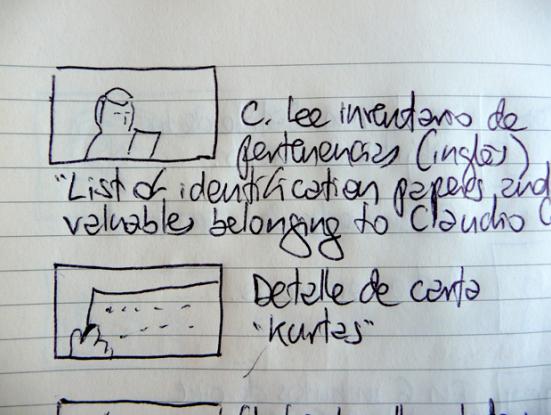 C. Lee inventario de
pertenencias (inglés)
"List of identification papers and
valuables belonging to Claudio C
Detalle de carta
"Kurtas"